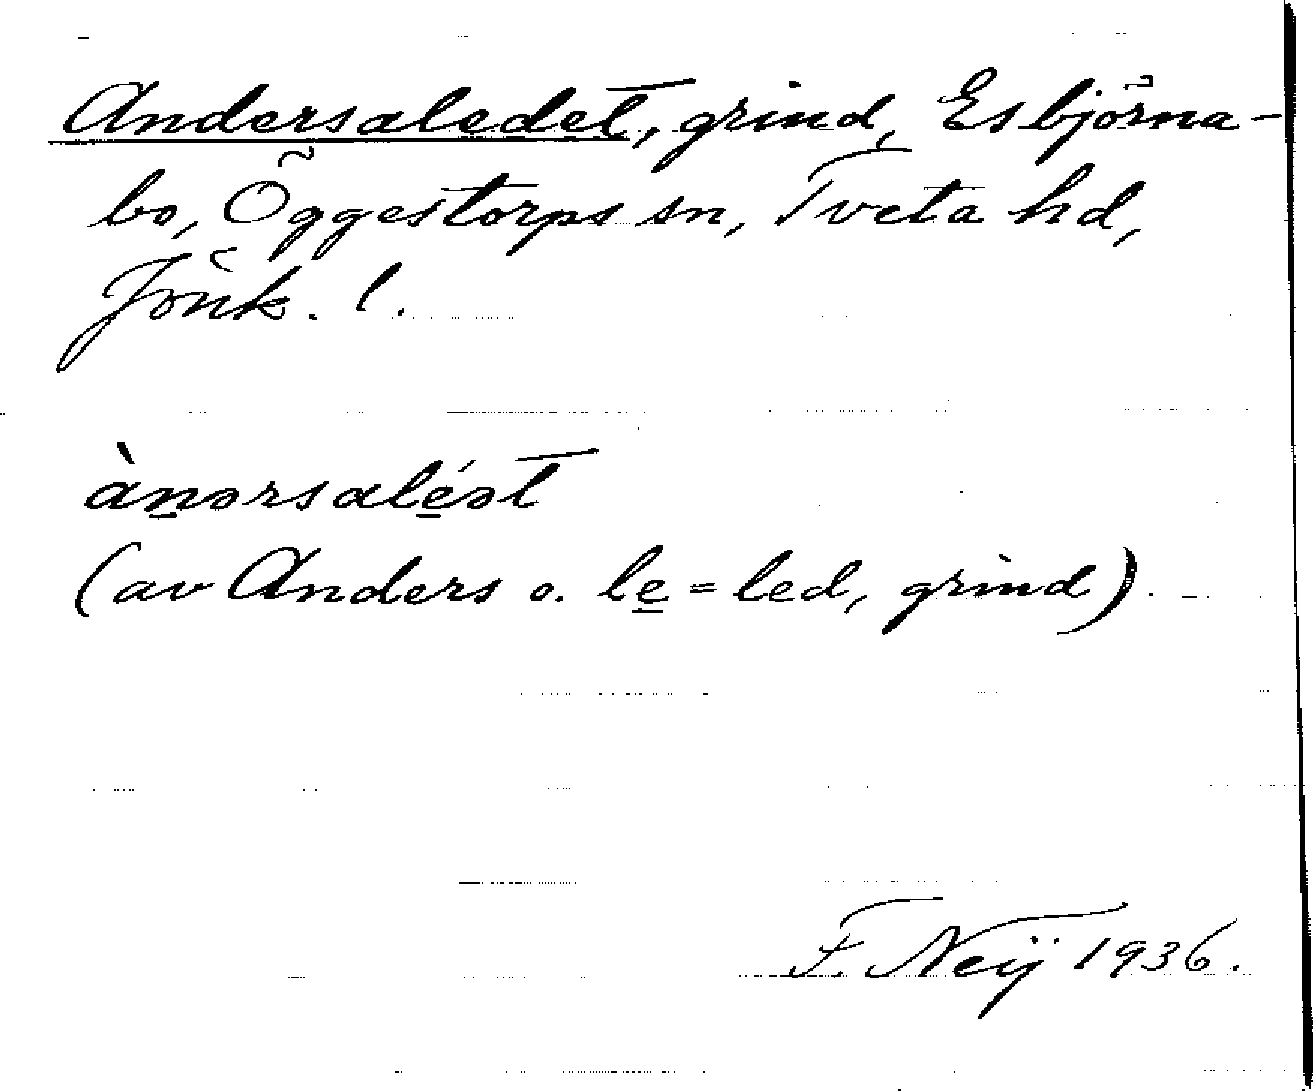 Andersaledet, grind, Esbjörna-
bo, Öggestorps sn, Tveta hd,
Jönk. l.
àn̲ərsalé̲ət
(av Anders o. le̲ = led, grind)
F. Neij 1936.